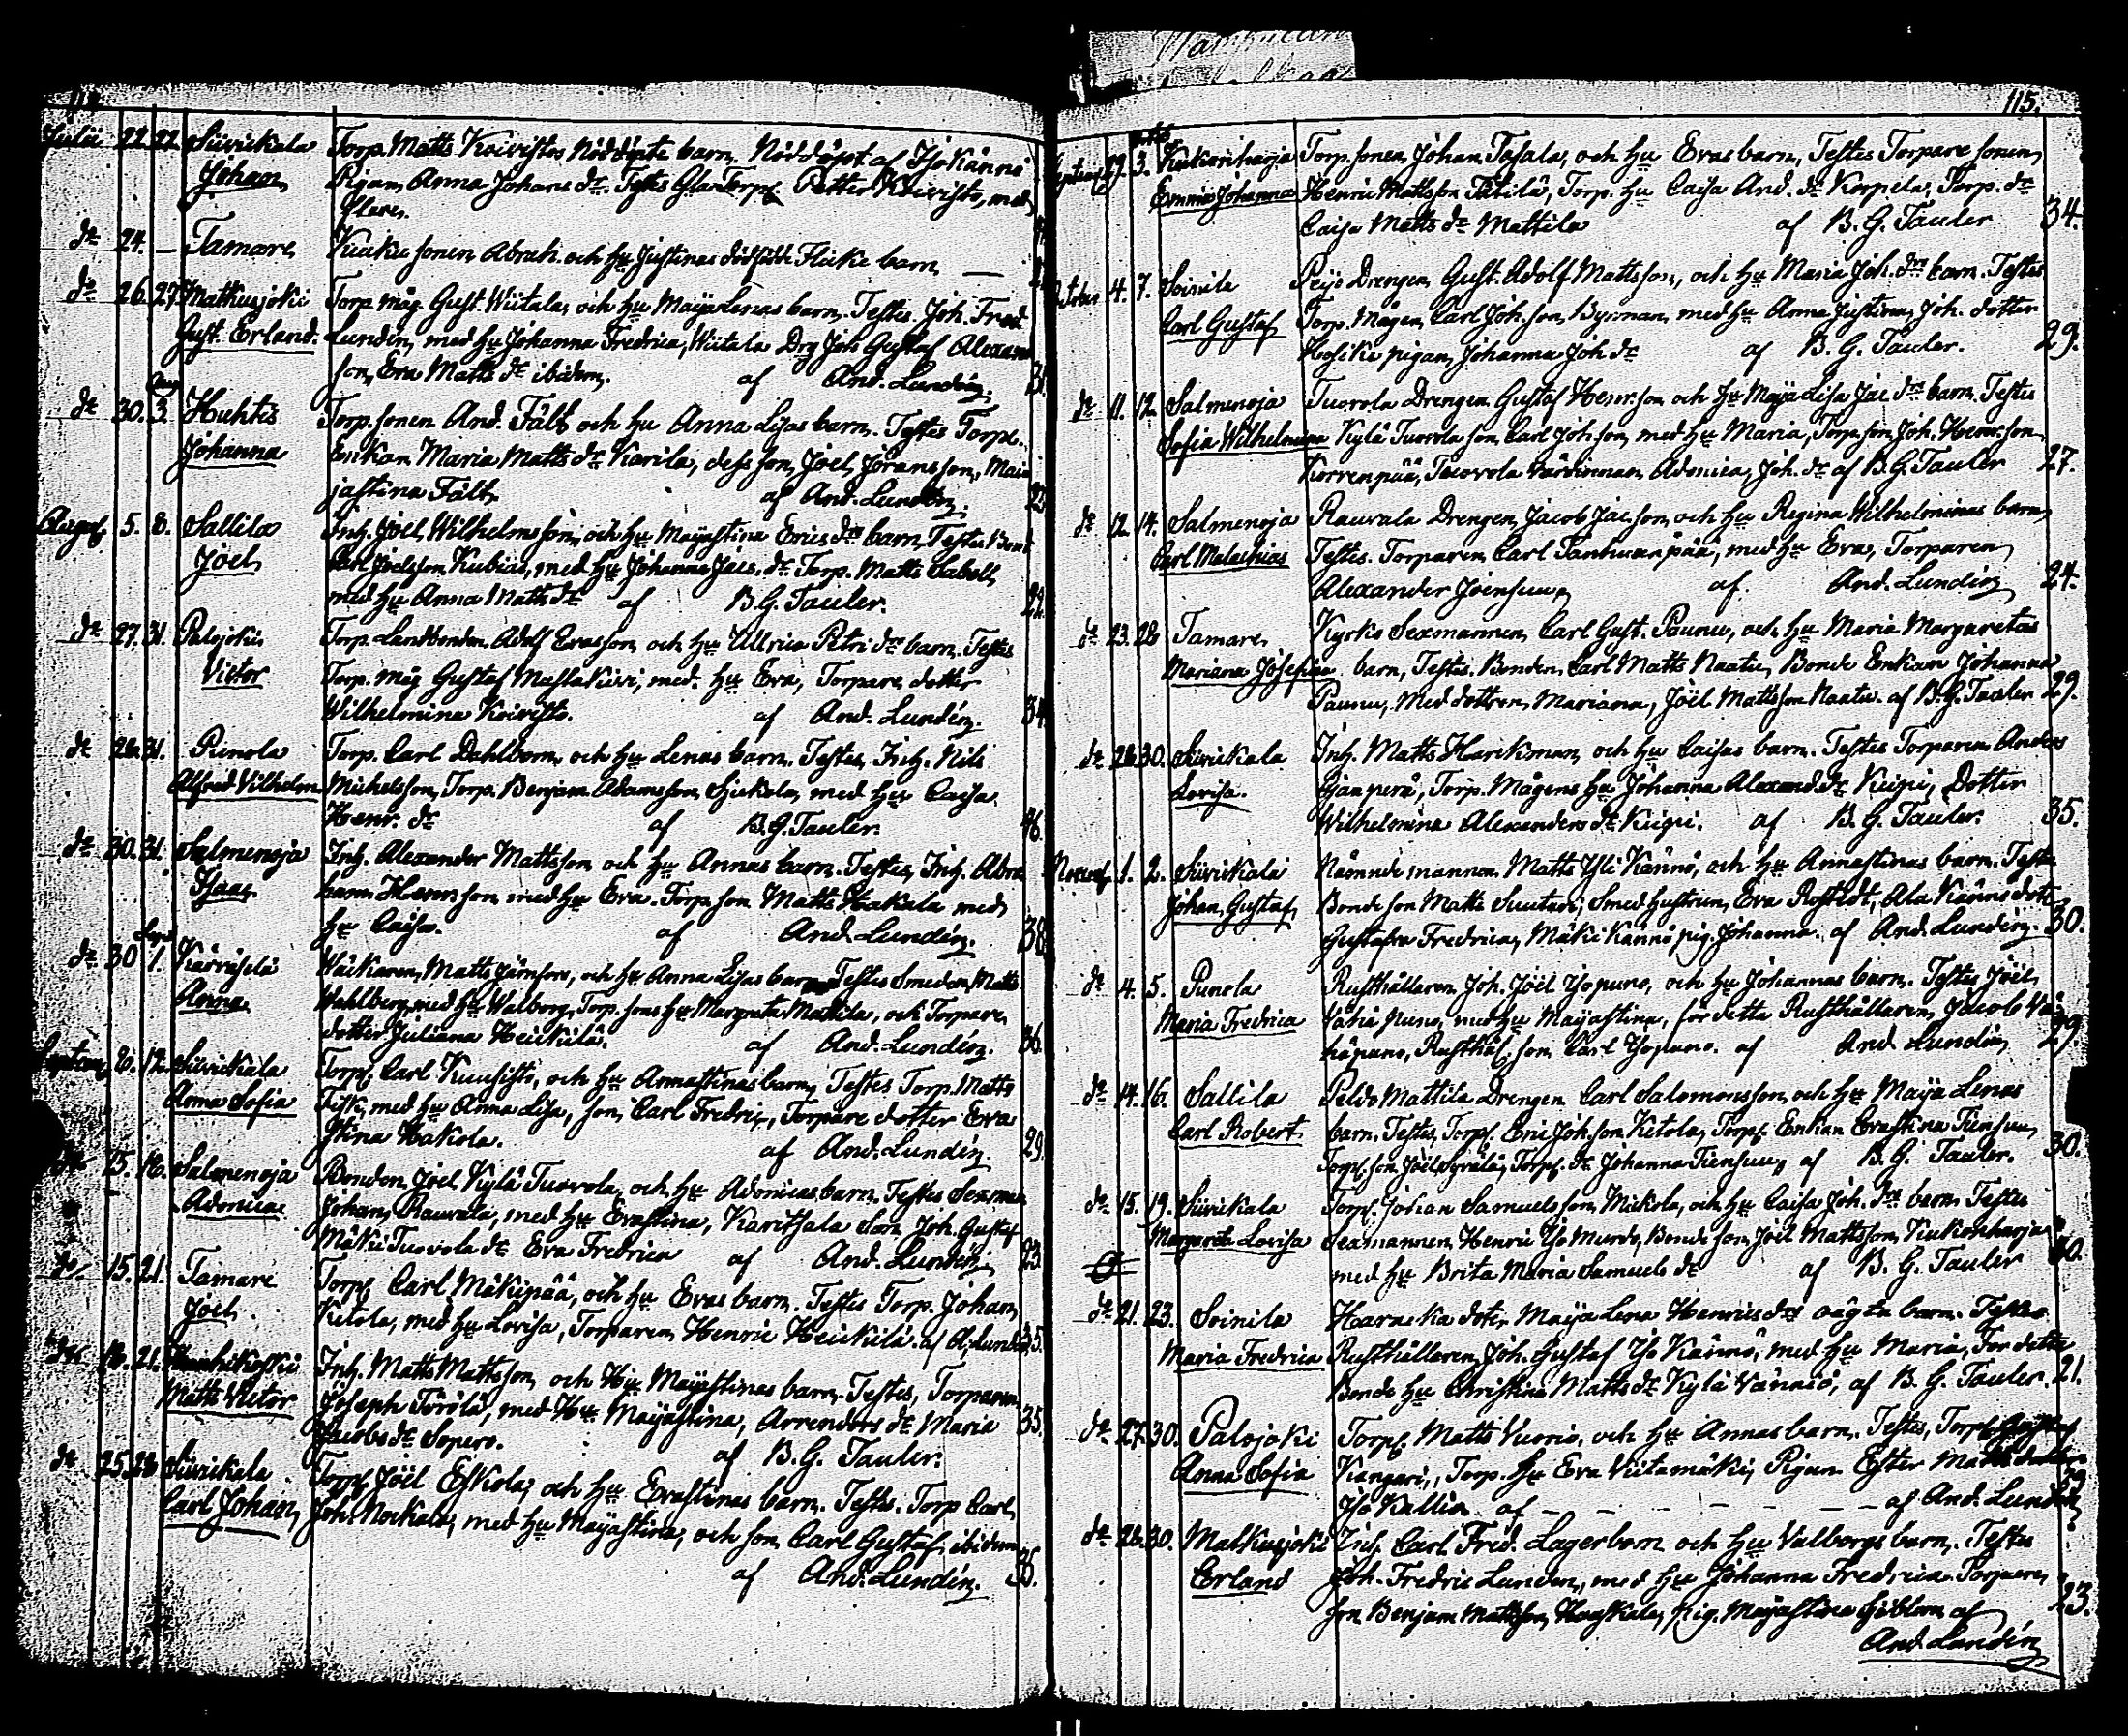 114
Julii 22. 22. Siirickala Torp. Matts Koivistos Nöddöpta barn. Nöddöpt af Iso Kännö
Johan Pigan, Anna Johans dr. Testes Torp. Petter Koivisto, med
flere.
dr 24. — Tamare Kuckusonen Abrah. och hu Justinas dödfödde Flicke barn —
dr 26. 27. Matkusjoki Torp. måg Gust. Wiitala, och hu Maija Lenas barn. Testes Joh. Fred.
Gust. Erland. Lundén, med hu Johanna Fredrica, Wiitala Drg Joh Gustaf
son, Eva Matts dr ibidem. af And. Lundén. 31.
Aug
dr 30. 3. Huhtis Torp. sonen And. Fält och hu Anna Lisas barn. Testes Torp.
Johanna Enkan Maria Matts dr Karila, dess son, Joel Jöransson, Maia
justina Fält af And. Lundén.
August. 5. 8. Sallila Inh. Joel Wilhelmsson, och hu Majastina Erics drs barn, Testes
Joel Joelsson Kubias, med hu Johanna Jacs. dr Torp. Matts Cabell
med hu Anna Matts dr af B.G. Tauler. 22.
dr 27. 31. Palojoki Torp. Landbonden Adolf Ersson, och hu Ullrica Petri drs barn. Testes
Victor Torp. måg Gustaf Maslakivi, med hu Eva, Torpare dotter
Wilhelmina Koivisto. af And. Lundén. 34
dr 28. 31. Punola Torp. Carl Dahlbom, och hu Lenas barn. Testes, Inh. Nils
Alfred Vilhelm Michelsson, Torp. Benjam Adamsson Sjukola, med hu Caisa
Henr. dr af B.G. Tauler. 46.
dr 30. 31. Salmenoja Inh. Alexander Mattsson och hu Annas barn. Testes, Inh. Abra
Isaac ham Henrsson med hu Eva. Torp. son Matts Hakala med
hu Caisa. af And. Lundén. 38
Sept
dr 30 1. Kärväselä Wäckaren, Matts Jernfors, och hu Anna Lisas barn Testes Smeden Matts
Anna Wahlberg, med hu Walborg, Torp. sons hu Margreta Mattila, och Torpare
dotter Juliana Heickilä. af And. Lundén. 36.
Septem. 8. 12. Siirickala Torp. Carl Kuusisto, och hu Annastinas barn, Testes Torp. Matts
Anna Sofia Fisk, med hu Anna Lisa, son, Carl Fredric, Torpare dotter Eva
Stina Hakola. af And. Lundén. 29.
15. 16. Salmenoja Bonden Joel Kylä Tuovola, och hu Adonicas barn. Testes Sexman
Adonica Johan, Rauvala, med hu Evastina, Karitsala Son Joh. Gustaf
Mäki Tuovola dr Eva Fredrica af And. Lundén 23.
dr. 15. 21. Tamare Torp. Carl Mäkipää, och hu Evas barn. Testes Torp. Johan
Joel. Kitola, med hu Lovisa, Torparen Henric Heickilä. af A. Lundén 35.
dr 18. 21. Inh. Matts Mattsson, och Hu Majastinas barn. Testes, Torparen
Matts Victor Joseph Törölä, med Hu Majastina, Arrendors dr Maria
Jacobs dr Sopero. af B. G. Tauler. 35.
dr 25. 28 Siirickala Torp. Joel Eskola, och hu Evastinas barn. Testes. Torp Carl
Carl Johan Joh. Nockala, med hu Majastina, och son Carl Gustaf ibidem
af And. Lundén. 36.
115.
Septemb. 29. 3. Kiukoinharja Torp. sonen Johan Tasala, och hu Evas barn, Testes Torpare sonen
Emma Johanna Henric Mattsson Tätilä, Torp. hu Caisa And. dr Korpela, Torp. dr
Caisa Matts dr Mattila af B. G. Tauler 34.
October 4. 7. Soinila Peijo Drengen Gust. Adolf Mattsson, och hu Maria Joh. drs barn. Testes
Carl Gustaf Torp. Mågen Carl Joh. son Byrman, med hu Anna Justina Joh. dotter
Hosike pigan, Johanna Joh. dr af B. G. Tauler. 29.
dr 11. 12. Salmenoja Tuovola Drengen Gustaf Henr. son och hu Maja Lisa Jac. drs barn. Testes
Sofia Wilhelmina Kylä Tuovola son, Carl Joh. son, med hu Maria, Torp. son Joh. Henr. son
Korrenpää, Tuovola värdinnan Adonica, Joh. dr af B.G. Tauler 27.
dr 12. 14. Salmenoja Rauvala Drengen, Jacob Jacsson och hu Regina Wilhelminas barn,
Carl Malachias Testes. Torparen Carl Tanhuanpää, med hu Eva, Torparen
Alexander Joensuu, af And. Lundén 24.
dr 23. 28 Tamare Kyrko Sexmannen Carl Gust. Paunu, och hu Maria Margaretas
Mariana Josefina barn, Testes. Bonden Carl Matts Naatu, Bonde Enkan Johanna
Paunu, Med dottren, Mariana, Joël Mattsson Naatu. af B. G. Tauler 29.
dr 28. 30. Siirickala Inh. Matts Harckman, och hu Caisas barn. Testes Torparen Anders
Lovisa. Ojanperä, Torp. Mågens hu Johanna Alexand. dr Kuipi, Dotter
Wilhelmina Alexanders dr Kuipi. af B. G. Tauler. 35.
Novemb. 1. 2. Siirickala Nämndemannen Matts Yli Kännö, och hu Annastinas barn. Testes
Johan Gustaf Bonde son Matts Suutari, Smed hustrun, Eva Rostedt, Ala Kännö dott
Gustafva Fredrica, Mäki Kännö pig. Johanna. af And. Lundén. 30.
dr 4. 5. Punola Rusthållaren Joh. Joël Isopuno, och hu Johannas barn. Testes Joël
Maria Fredrica Vähä Puno, med hu Majastina, för detta Rusthållaren, Jacob Vä
häpuno, Rusthål. son Carl Isopuno. af And. Lundén 29.
dr 14. 16. Sallila Peldo Mattila Drengen Carl Salomonsson och hu Maija Lenas
Carl Robert barn. Testes, Torp. Eric Joh. son Kitola, Torp. Enkan Evastina Tiensuu,
Torp. son Joël Syrälä, Torp. dr Johanna Tiensuu, af B. G. Tauler. 30.
dr 15. 19. Siirickala Torp. Johan Samuelsson, Mickola, och hu Caisa Joh. drs barn Testes
Margareta Lovisa Sexmannen Henric Iso Murdo, Bonde son, Joël Mattsson, Kiukoinharja
med hu Brita Maria Samuels dr af B. G. Tauler 40.
dr 21. 23. Soinila Haracka doter, Maija Lena Henrics drs oägta barn. Testes
Maria Fredrica Rusthållaren Joh. Gustaf Iso Kännö, med hu Maria, För detta
Bonde hu Christina Matts dr Kylä Vännilö, af B. G. Tauler. 21.
dr 27. 30. Palojoki Torp. Matts Vuorio och hu Annas barn. Testes, Torp.
Anna Sofia Kangari, Torp. hu Eva Viitamäki, Pigan Ester Matts dotter
Iso Kallia af — — — — af And. Lundén
dr 28. 30. Matkusjoki Inh. Carl Fred. Lagerbom och hu Valborgs barn. Testes
Erland Joh. Fredric Lunden, med hu Johanna Fredrica. Torpare
son Benjam Mattsson Hagskala, pig. Majastina Sjöblom af 23.
And. Lundén